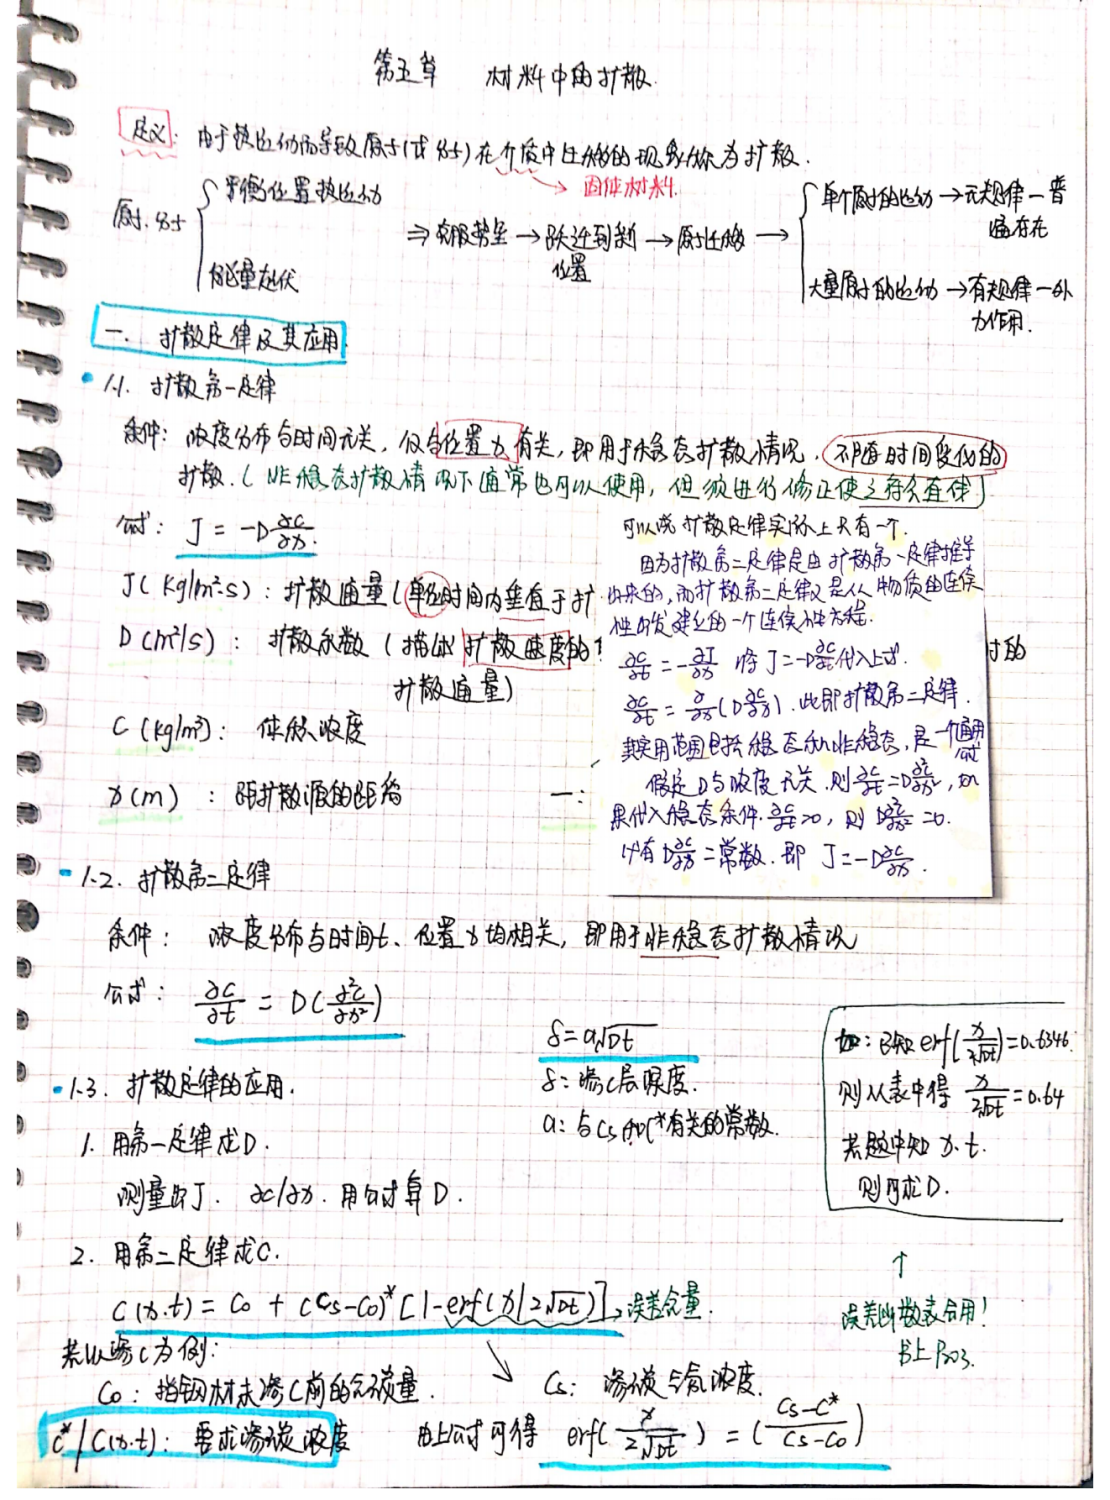 第五章 材料中的扩散.
定义: 由于热运动而导致原子(或分子)在介质中迁移的现象称为扩散.
固体材料.
原子.分子
平衡位置热运动
能量起伏
⇒克服势垒→跃迁到新位置→原子迁移→
单个原子的运动→无规律—普遍存在
大量原子的运动→有规律—外力作用.
一. 扩散定律及其应用.
1.1. 扩散第一定律
条件: 浓度分布与时间无关, 仅与位置x有关, 即用于稳态扩散情况, 不随时间变化的
扩散. (非稳态扩散情况下通常也可以使用, 但须进行修正使之符合定律)
公式: J = -D ∂c/∂x.
J( kg/m²·s): 扩散通量(单位时间内垂直于扩
D(m²/s): 扩散系数 (描述扩散速度的
时的
扩散通量)
C (kg/m³): 体积浓度
x(m) : 距扩散源的距离
一:
可以说扩散定律实际上只有一个.
因为扩散第二定律是由扩散第一定律推导
出来的, 而扩散第二定律又是从物质的连续
性出发建立的一个连续性方程.
∂c/∂t = -∂J/∂x 将 J=-D∂c/∂x代入上式.
∂c/∂t = ∂/∂x(D∂c/∂x). 此即扩散第二定律.
其实用范围包括稳态和非稳态, 是一个通用公式
假定D与浓度无关, 则∂c/∂t=D∂²c/∂x², 如
果代入稳态条件. ∂c/∂t=0, 则 D∂²c/∂x²=0.
才有D∂c/∂x=常数. 即 J=-D∂c/∂x.
1.2. 扩散第二定律
条件: 浓度分布与时间t、位置x均相关, 即用于非稳态扩散情况
公式: ∂c/∂t = D(∂²c/∂x²)
1.3. 扩散定律的应用.
1. 用第一定律求D.
测量出J. ∂c/∂x. 用公式算D.
δ=a√Dt
δ: 渗C层深度.
a: 与Cs和C*有关的常数.
如: 已知erf(x/2√Dt)=0.6346.
则从表中得 x/2√Dt=0.64
若题中知 x.t.
则可求D.
↑
误差函数表合用!
书上P203.
2. 用第二定律求C.
C(x.t) = C₀ + (Cs-C₀)*[1-erf(x/2√Dt)]→误差含量.
若以渗C为例:
C₀: 指钢材未渗C前的含碳量.
Cs: 渗碳气氛浓度.
C*/C(x.t): 要求渗碳浓度
由上公式可得 erf(x/2√Dt) = (Cs-C*/Cs-C₀)